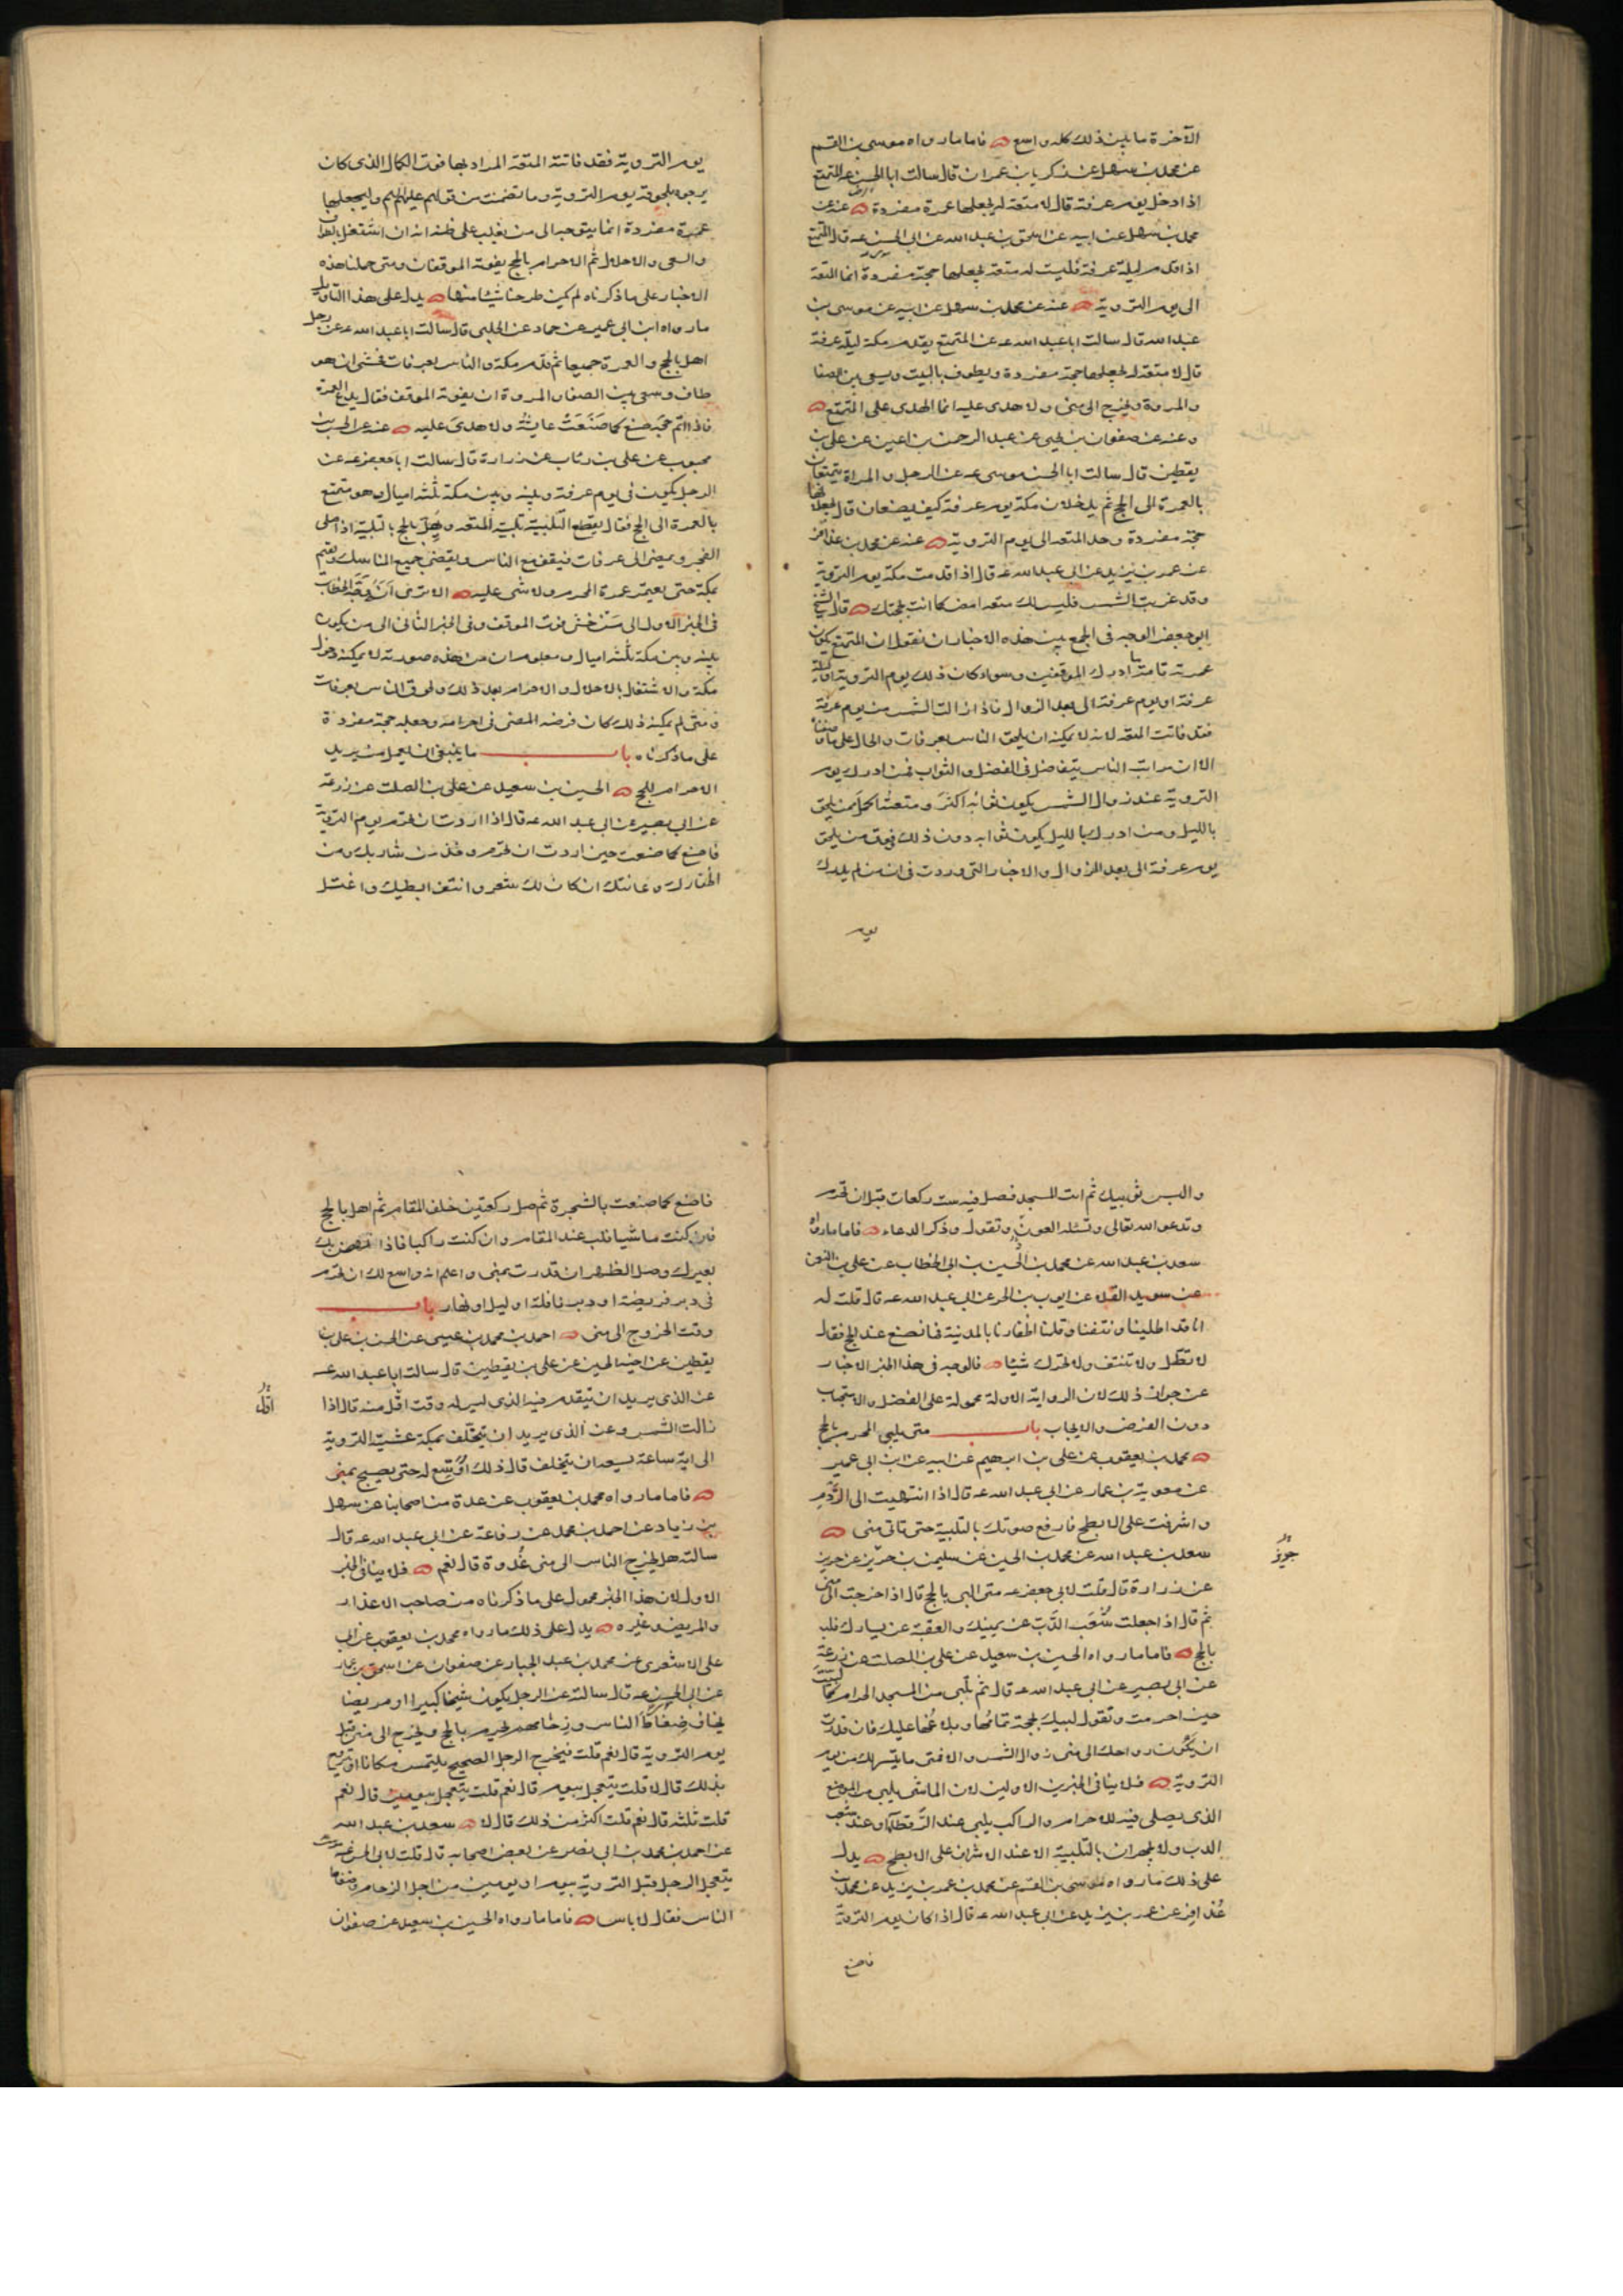 الآخرة ما بين ذلك كله واسع فاما ما رواه موسى بن القسم
عن محمد بن سهل عن زكريا بن عمران قال سالت ابا الحسن عن المتمتع
اذا دخل يوم عرفة قال لا متعة له يجعلها عمرة مفردة عنه عن
محمد بن سهل عن ابيه عن اسحق بن عبدالله عن ابى الحسن عه قال المتمتع
اذا قدم ليلة عرفة فليست له متعة يجعلها حجة مفردة انما المتعة
الى يوم التروية عنه عن محمد بن سهل عن ابيه عن موسى بن
عبدالله قال سالت اباعبدالله عه عن المتمتع يقدم مكة ليلة عرفة
قال لا متعة له يجعلها حجة مفردة ويطوف بالبيت ويسعى بين الصفا
والمروة ويخرج الى منى ولا هدى عليه انما الهدى على المتمتع
وعنه عن صفوان بن يحيى عن عبدالرحمن بن اعين عن على بن
يقطين قال سالت ابا الحسن موسى عه عن الرجل والمراة يتمتعان
بالعمرة الى الحج ثم يدخلان مكة يوم عرفة كيف يصنعان قال يجعلانها
حجة مفردة وحد المتعة الى يوم التروية عنه عن محمد بن عذافر
عن عمر بن يزيد عن ابى عبدالله عه قال اذا قدمت مكة يوم التروية
وقد غربت الشمس فليس لك متعة امض كما انت بحجك قال الشيخ
ابو جعفر الوجه فى الجمع بين هذه الاخبار ان نقول ان المتمتع يكون
عمرته تامة ما ادرك الموقفين وسواء كان ذلك يوم التروية او ليلة
عرفة او يوم عرفة الى بعد الزوال فاذا زالت الشمس من يوم عرفة
فقد فاتت المتعة لانه لا يمكنه ان يلحق الناس بعرفات والحال على ما وصفناه
الا ان مراتب الناس يتفاضل فى الفضل والثواب فمن ادرك يوم
التروية عند زوال الشمس يكون ثوابه اكثر ومتعته اكمل ممن يلحق
بالليل ومن ادرك بالليل يكون ثوابه دون ذلك وفوق من يلحق
يوم عرفة الى بعد الزوال والاخبار التى وردت فى ان من لم يدرك
يوم
يوم التروية فقد فاتته المتعة المراد بها فوت الكمال الذى كان
يرجوه بلحوقه يوم التروية وما تضمنت من قولهم عليهم السلم وليجعلها
عمرة مفردة انما يتوجه الى من يغلب على ظنه انه ان اشتغل بالطواف
والسعى والاحلال ثم الاحرام بالحج يفوته الموقفان ومتى حملنا هذه
الاخبار على ما ذكرناه لم يكن طرحنا شيئا منها يدل على هذا التاويل
ما رواه ابن ابى عمير عن حماد عن الحلبى قال سالت اباعبدالله عه عن رجل
اهل بالحج والعمرة جميعا ثم قدم مكة والناس بعرفات فخشى ان هو
طاف وسعى بين الصفا والمروة ان يفوته الموقف فقال يدع العمرة
فاذا اتم حجه صنع كما صَنَعَتْ عايشة ولا هدى عليه عنه عن الحسن بن
محبوب عن على بن رئاب عن زرارة قال سالت اباجعفر عه عن
الرجل يكون فى يوم عرفة وبينه وبين مكة ثلثة اميال وهو متمتع
بالعمرة الى الحج فقال يقطع التلبية تلبية المتعة ويُهِلّ بالحج بالتلبية اذا صلى
الفجر ويمضى الى عرفات فيقف مع الناس ويقضى جميع المناسك ويقيم
بمكة حتى يعتمر عمرة المحرم ولا شى عليه الا ترى انه وجه الخطاب
فى الخبر الاول الى من خشى فوت الموقف وفى الخبر الثانى الى من يكون
بينه وبين مكة ثلثة اميال ومعلوم ان من هذه صورته لا يمكنه دخول
مكة والاشتغال بالاحلال والاحرام بعد ذلك ولحوق الناس بعرفات
ومتى لم يمكنه ذلك كان فرضه المضى فى احرامه وجعله حجة مفردة
على ما ذكرناه باب ما ينبغى ان يعمل من يريد
الاحرام للحج الحسين بن سعيد عن على بن الصلت عن زرعة
عن ابى بصير عن ابى عبدالله عه قال اذا اردت ان تحرم يوم التروية
فاصنع كما صنعت حين اردت ان تحرم وخذ من شاربك ومن
اظفارك وعانتك ان كان لك شعر وانتف ابطيك واغتسل
والبس ثوبيك ثم ائت المسجد فصل فيه ست ركعات قبل ان تحرم
وتدعو الله تعالى وتسئله العون وتقول وذكر الدعاء فاما ما رواه
سعد بن عبدالله عن محمد بن الحسين بن ابى الخطاب عن على بن
عن سويد القلا عن ايوب بن الحر عن ابى عبدالله عه قال قلت له
انا قد اطلينا ونتفنا وقلمنا اظفارنا بالمدينة فما نصنع عند الحج فقال
لا تطل ولا تنتف ولا تحرك شيئا فالوجه فى هذا الخبر الاخبار
عن جواز ذلك لان الرواية الاولة محمولة على الفضل والاستحباب
دون الفرض والايجاب باب متى يلبى المحرم بالحج
محمد بن يعقوب عن على بن ابرهيم عن ابيه عن ابن ابى عمير
عن معوية بن عمار عن ابى عبدالله عه قال اذا انتهيت الى الرَّدم
واشرفت على الابطح فارفع صوتك بالتلبية حتى تاتى منى
سعد بن عبدالله عن محمد بن الحسين عن سليمن بن حريز عن حريز
عن زرارة قال قلت لابى جعفر عه متى البى بالحج قال اذا خرجت الى منى
ثم قال اذا جعلت شُعَب الدُّبّ عن يمينك والعقبة عن يسارك فلب
بالحج فاما ما رواه الحسين بن سعيد عن على بن الصلت عن زرعة
عن ابى بصير عن ابى عبدالله عه قال ثم تلبى من المسجد الحرام كما لبيت
حين احرمت وتقول لبيك بحجة تمامها وبلاغها عليك فان قدرت
ان يكون رواحك الى منى زوال الشمس والا فمتى ما تيسر لك من يوم
التروية فلا ينافى الخبرين الاولين لان الماشى يلبى من الموضع
الذى يصلى فيه للاحرام والراكب يلبى عند الرَّقطاء او عند شعب
الدب ولا يجهران بالتلبية الا عند الاشراف على الابطح يدل
على ذلك ما رواه موسى بن القسم عن محمد بن عمر بن يزيد عن محمد بن
عُذافر عن عمر بن يزيد عن ابى عبدالله عه قال اذا كان يوم التروية
فاصنع
فاصنع كما صنعت بالشجرة ثم صل ركعتين خلف المقام ثم اهل بالحج
فان كنت ماشيا فلب عند المقام وان كنت راكبا فاذا نهض بك
بعيرك وصل الظهر ان قدرت بمنى واعلم انه واسع لك ان تحرم
فى دبر فريضة او دبر نافلة او ليل او نهار باب
وقت الخروج الى منى احمد بن محمد بن عيسى عن الحسن بن على بن
يقطين عن اخيه الحسين عن على بن يقطين قال سالت اباعبدالله عه
عن الذى يريد ان يتقدم فيه الذى ليس له وقت اقل منه قال اذا
اوّل
زالت الشمس وعن الذى يريد ان يتخلف بمكة عشية التروية
الى اية ساعة يسعه ان يتخلف قال ذلك اوسع له حتى يصبح بمنى
فاما ما رواه محمد بن يعقوب عن عدة من اصحابنا عن سهل
بن زياد عن احمد بن محمد عن رفاعة عن ابى عبدالله عه قال
سالته هل يخرج الناس الى منى غُدوة قال نعم فلا ينافى الخبر
الاول لان هذا الخبر محمول على ما ذكرناه من صاحب الاعذار
والمريض وغيره يدل على ذلك ما رواه محمد بن يعقوب عن ابى
على الاشعرى عن محمد بن عبدالجبار عن صفوان عن اسحق بن عمار
عن ابى الحسن عه قال سالته عن الرجل يكون شيخا كبيرا او مريضا
يخاف ضغاط الناس وزحامهم يحرم بالحج ويخرج الى منى قبل
يوم التروية قال نعم قلت فيخرج الرجل الصحيح يلتمس مكانا او يتروح
بذلك قال لا قلت يتعجل بيوم قال نعم قلت يتعجل بيومين قال نعم
قلت ثلثة قال نعم قلت اكثر من ذلك قال لا سعد بن عبدالله
عن احمد بن محمد بن ابى نصر عن بعض اصحابه قال قلت لابى الحسن عه
يتعجل الرجل قبل التروية بيوم او يومين من اجل الزحام وضغاط
الناس فقال لا باس فاما ما رواه الحسين بن سعيد عن صفوان